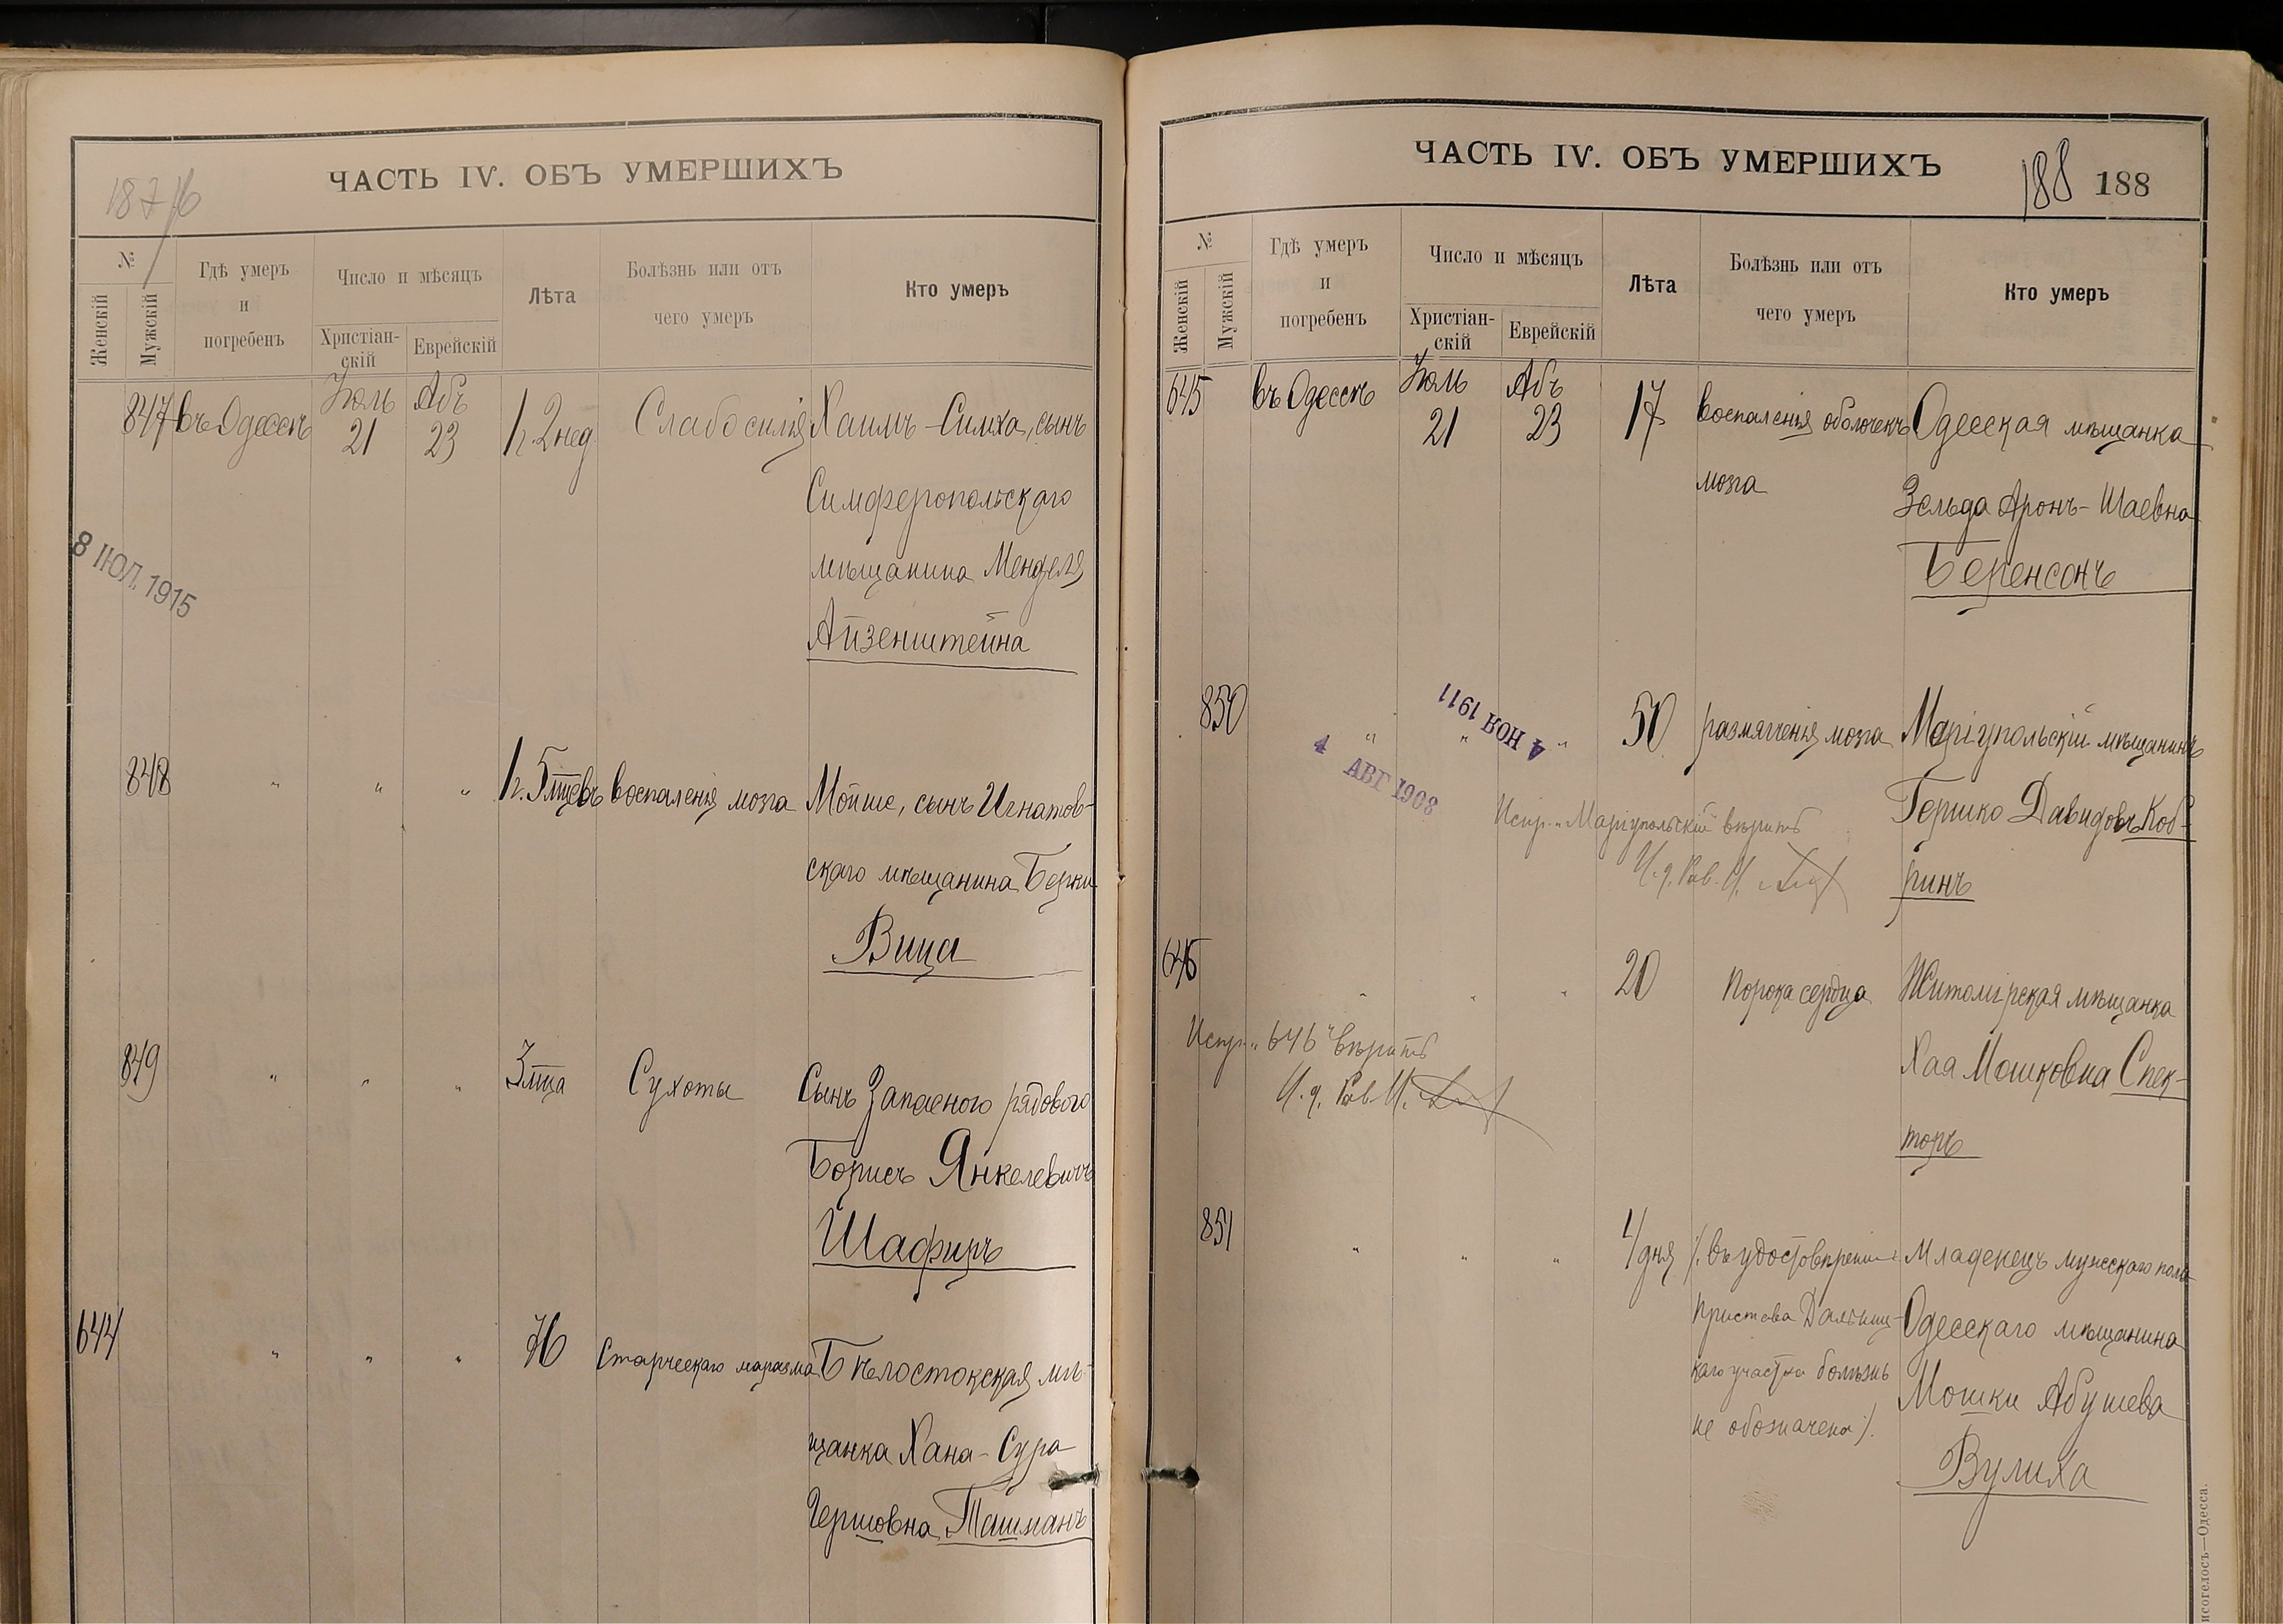 ЧАСТЬ IV. ОБЪ УМЕРШИХЪ
№
Женскій
Мужскій
Гдѣ умеръ
и
погребенъ
Число и мѣсяцъ
Христіан-
скій
Еврейскій
Лѣта
Болѣзнь или отъ
чего умеръ
Кто умеръ
847 въ Одессѣ Іюль 21 Абъ 23 1г. 2 нед. Слабосилія Хаимъ-Симха, сынъ
Симферопольскаго
мѣщанина Менделя
Айзенштейна
8 ІЮЛ. 1915
848 " " " 1г. 5 мцевъ воспаленія мозга Мойше, сынъ Игнатов-
скаго мѣщанина Берки
Вица
849 " " " 3 мца Сухоты Сынъ Запасного рядового
Борисъ Янкелевичъ
Шафиръ
644 " " " Старческаго маразма Бѣлостокская мѣ-
щанка Хана-Сура
Гершовна Ташманъ
ЧАСТЬ IV. ОБЪ УМЕРШИХЪ
188 188
№
Женскій
Мужскій
Гдѣ умеръ
и
погребенъ
Число и мѣсяцъ
Христіан-
скій
Еврейскій
Лѣта
Болѣзнь или отъ
чего умеръ
Кто умеръ
645 въ Одессѣ Іюль 21 Абъ 23 17 воспаленія оболочекъ Одесская мѣщанка
мозга Зельда Аронъ-Шаевна
Беренсонъ
4 НОЯ 1911
850 " " " 50 размягченія мозга Маріупольскій мѣщанинъ
4 АВГ 1908
Гершко Давидовъ Коб-
Испр. "Маріупольскій" вѣрить
И. д. Рав. И.
ринъ
646 " " " 20 Порока сердца Житомірская мѣщанка
Испр. "646" вѣрить
Хая Мошковна Спек-
И. д. Рав. И.
торъ
851 " " " 4 дня /. въ удостовѣреніи Младенецъ мужескаго пола
Пристава Дальниц-
Одесскаго мѣщанина
каго участка болѣзнь
Мошки Абушева
не обозначена /.
Вулиха
исогелосъ—Одесса.